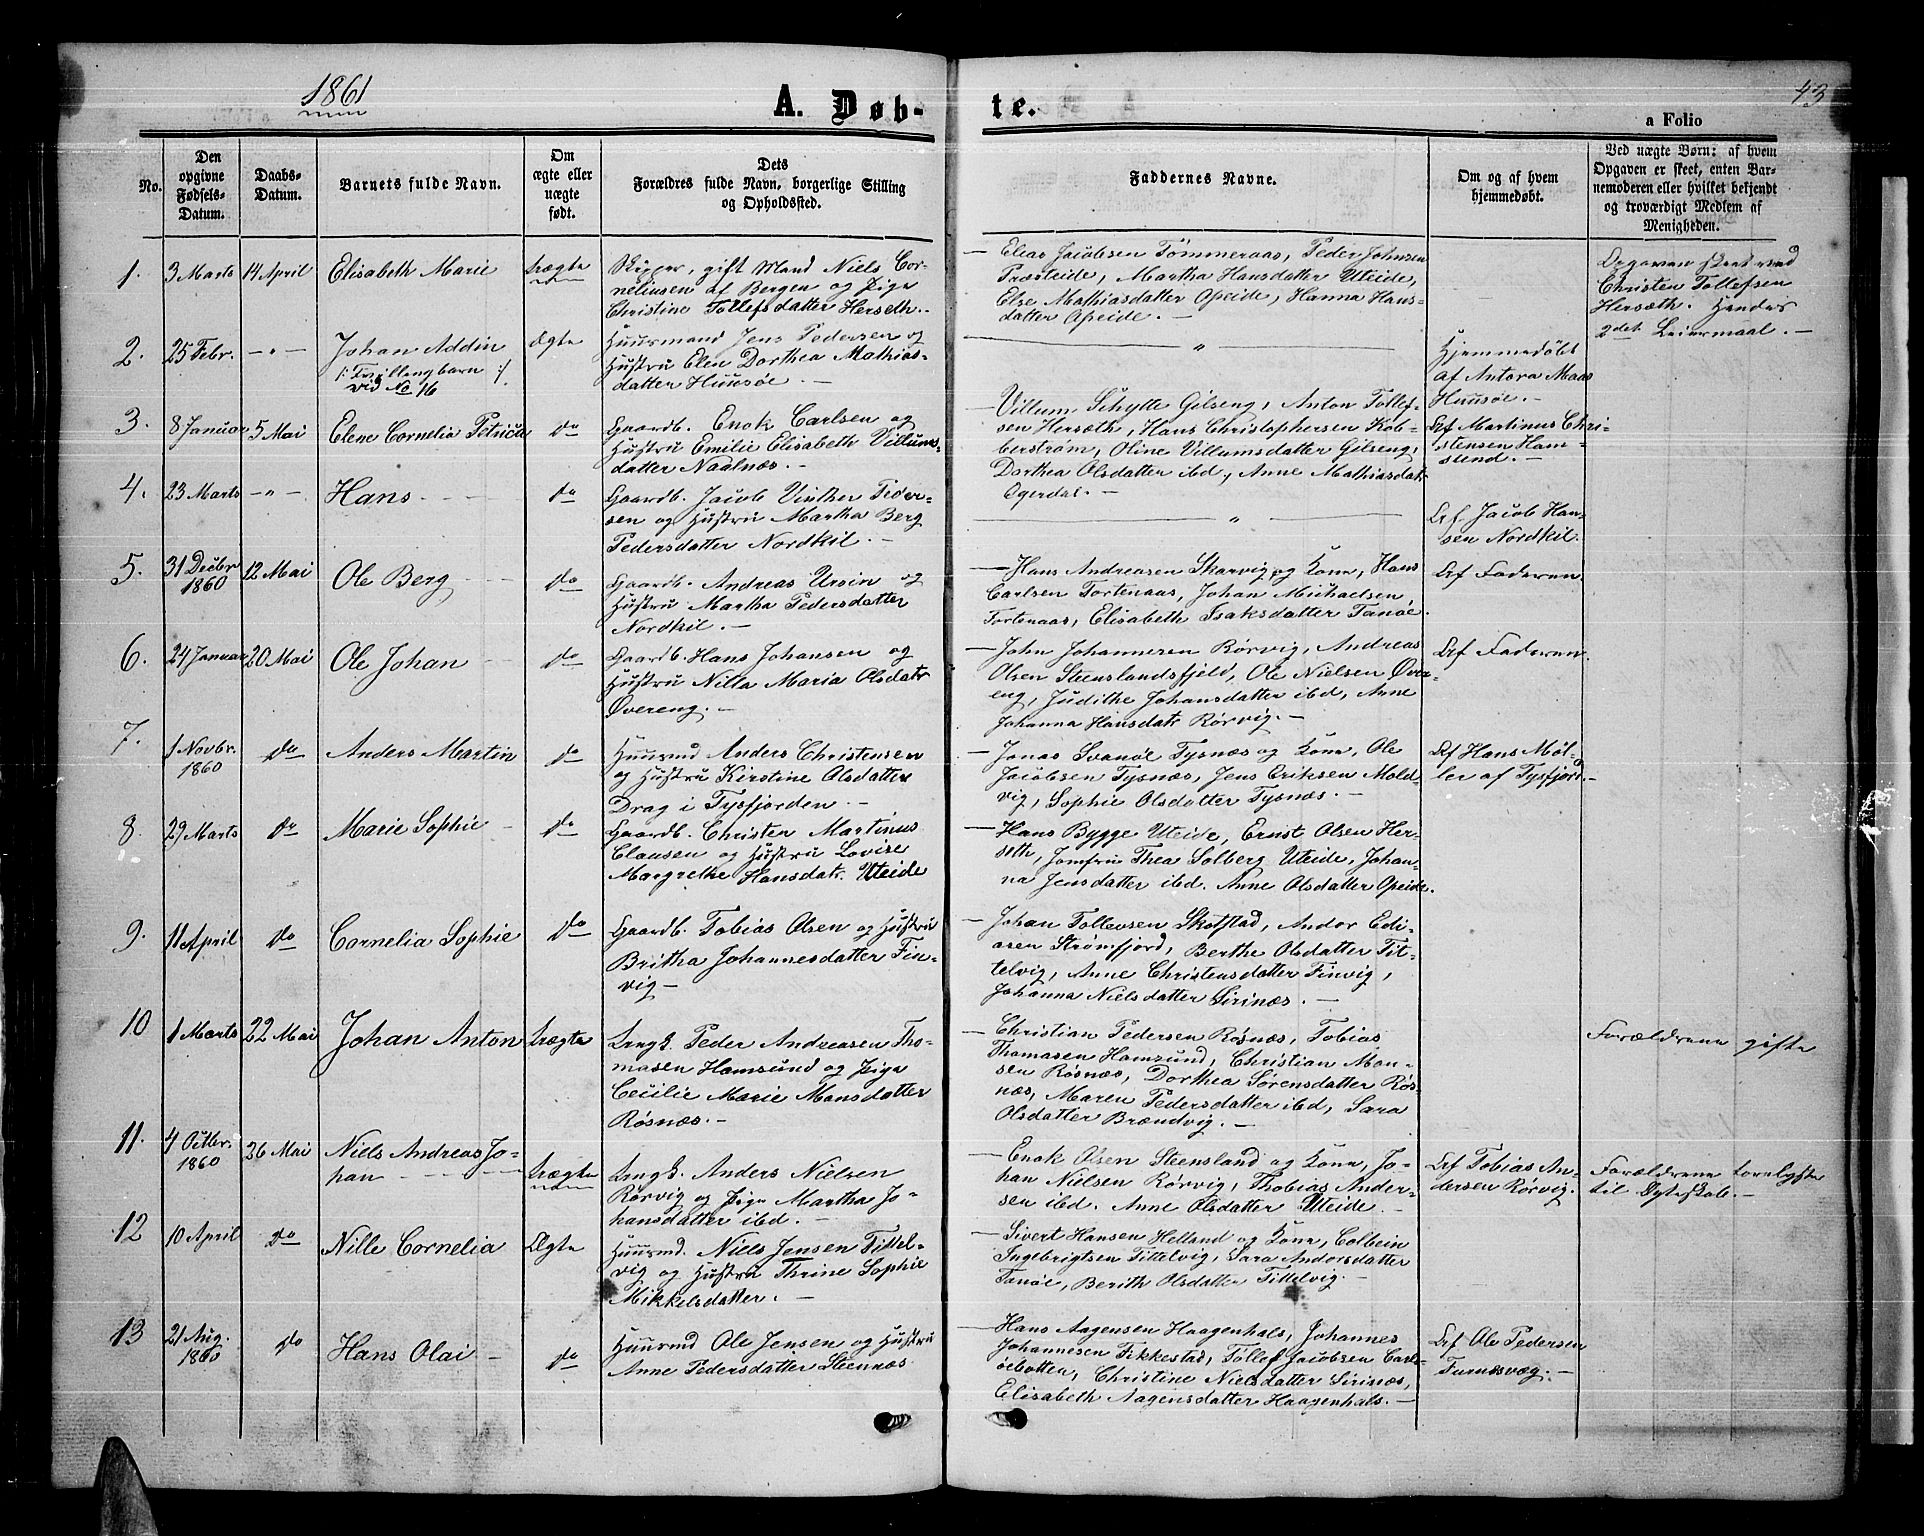 1861
A. Døb-
te.
43
a Folio
No.
Den
opgivne
Fødsels-
Datum.
Daabs-
Datum.
Barnets fulde Navn.
Om
ægte eller
uægte
født.
Dets
Forældres fulde Navn, borgerlige Stilling
og Opholdssted.
Faddernes Navne.
Om og af hvem
hjemmedøbt.
Ved uægte Børn: af hvem
Opgaven er skeet, enten Bar-
nemoderen eller hvilket bekjendt
og troværdigt Medlem af
Menigheden.
1.
3 Marts
14 April
Elisabeth Marie
Uægte
Skipper, gift Mand Niels Cor-
neliusen af Bergen og Pige
Christine Tollefsdatter Herseth.-
- Elias Jacobsen Tømmeraas, Peder Johnsen
Præsteide, Martha Hansdatter Uteide,
Else Mathiasdatter Opeide, Hanna Hans-
datter Opeide. -
Opgaven skeet ved
Christen Tollefsen
Hersæth. Hendes
2det Leiermaal. -
2.
25 Febr.
- " -
Johan Addin
/: Trillingbarn :/
vid No 16
Ægte
Huusmand Jens Pedersen og
Hustru Elen Dorthea Mathias-
datter Huusøe. -
"
Hjemmedøbt
af Antora Maas
Huusøe. -
3.
8 Januar
5 Mai
Elene Cornelia Petrica
do
Gaardb. Enok Carlsen og
Hustru Emilie Elisabeth Villums-
datter Naalnæs. -
- Villum Schytte Gilseng, Anton Tollef-
sen Hersæth, Hans Christophersen Kob-
berstrøm, Oline Villumsdatter Gilseng,
Dorthea Olsdatter ibd, Anne Mathiasdatr
Ogerdal. -
Af Martinus Chri-
stensen Ham-
sund. -
4.
23 Marts
- " -
Hans
do
Gaardb. Jacob Vinther Peder-
sen og Hustru Martha Berg
Pedersdatter Nordkil. -
"
Af Jacob Han-
sen Nordkil.
5.
31 Decbr
1860
12 Mai
Ole Berg
do
Gaardb. Andreas Ursin og
Hustru Martha Pedersdatter
Nordkil. -
- Hans Andreasen Skarvig og Kone, Hans
Carlsen Tortenaas, Johan Michaelsen,
Tortenaas, Elisabeth Isaksdatter Tanøe.
Af Faderen.
6.
24 Januar
20 Mai
Ole Johan
do
Gaardb. Hans Johansen og
Hustru Nilla Maria Olsdatr
Øvereng. -
- John Johannesen Rørvig, Andreas
Olsen Steenslandsfjeld, Ole Nielsen Øver-
eng, Judithe Johansdatter ibd, Anne
Johanna Hansdatr Rørvig. -
Af Faderen.
7.
1 Novbr.
1860
do
Anders Martin
do
Huusmd Anders Christensen
og Hustru Kirstine Olsdatter
Drag i Tysfjorden. -
- Jonas Svanøe Tysnæs og Kone, Ole
Jacobsen Tysnæs, Jens Eriksen Mold-
vig, Sophie Olsdatter Tysnæs. -
Af Hans Møl-
ler af Tysfjord. -
8.
29 Marts
do
Marie Sophie
do
Gaardb. Christen Martinus
Clausen og Hustru Lovise
Margrethe Hansdatr. Uteide
- Hans Bygge Uteide, Ernst Olsen Her-
seth, Jomfru Thea Solberg Uteide, Johan-
na Jensdatter ibd. Anne Olsdatter Opeide.
9.
11 April
do
Cornelia Sophie
do
Gaardb. Tobias Olsen og Hustru
Britha Johannesdatter Fin-
vig -
- Johan Tollevsen Skofstad, Andor Edi-
asen Strømfjord, Berthe Olsdatter Tit-
telvig, Anne Christensdatter Finvig,
Johanna Nielsdatter Sirinæs. -
10
1 Marts
22 Mai
Johan Anton
Uægte
Ungk. Peder Andreasen Tho-
masen Hamsund og Pige
Cecilie Marie Monsdatter
Røsnæs. -
- Christian Pedersen Røsnæs, Tobias
Thomasen Hamsund, Christian Mon-
sen Røsnæs, Dorthea Sørensdatter Røs-
næs, Maren Pedersdatter ibd, Sara
Olsdatter Brændvig. -
Forældrene gifte
11.
4 Octbr.
1860
26 Mai
Niels Andreas Jo-
han
Uægte
Ungk. Anders Nielsen
Rørvig og Pige Martha Jo-
hansdatter ibd. -
- Enok Olsen Steensland og Kone, Jo-
han Nielsen Rørvig, Thobias Ander-
sen ibd. Anne Olsdatter Uteide. -
Af Tobias An-
dersen Rørvig.
Forældrene trolovede
til Ægteskab. -
12
10 April
do
Nille Cornelia
Ægte
Huusmd. Niels Jensen Tittel-
vig og Hustru Thrine Sophie
Mikkelsdatter. -
- Sivert Hansen Helland og Kone, Colbein
Ingebrigtsen Tittelvig, Sara Andorsdatter
Tanøe, Berith Olsdatter Tittelvig. -
13
21 Aug.
1860
do
Hans Olai
do
Huusmd Ole Jensen og Hustru
Anne Pedersdatter Steennæs
- Hans Aagensen Haagenhals, Johannes
Johannesen Fikkestad, Tollef Jacobsen Carls-
øebotten, Christine Nielsdatter Sirinæs,
Elisabeth Aagensdatter Haagenhals. -
Af Ole Pedersen
Furnesvæg. -